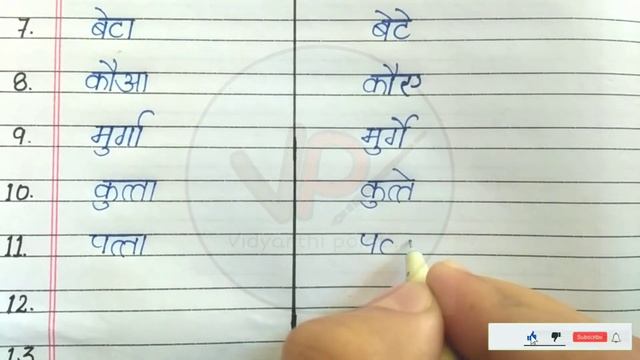 7. बेटा बेटे
8. कौआ कौए
9. मुर्गा मुर्गे
10. कुत्ता कुत्ते
11. पत्ता पत
12.
13
Vidyarthi po
Subscribe